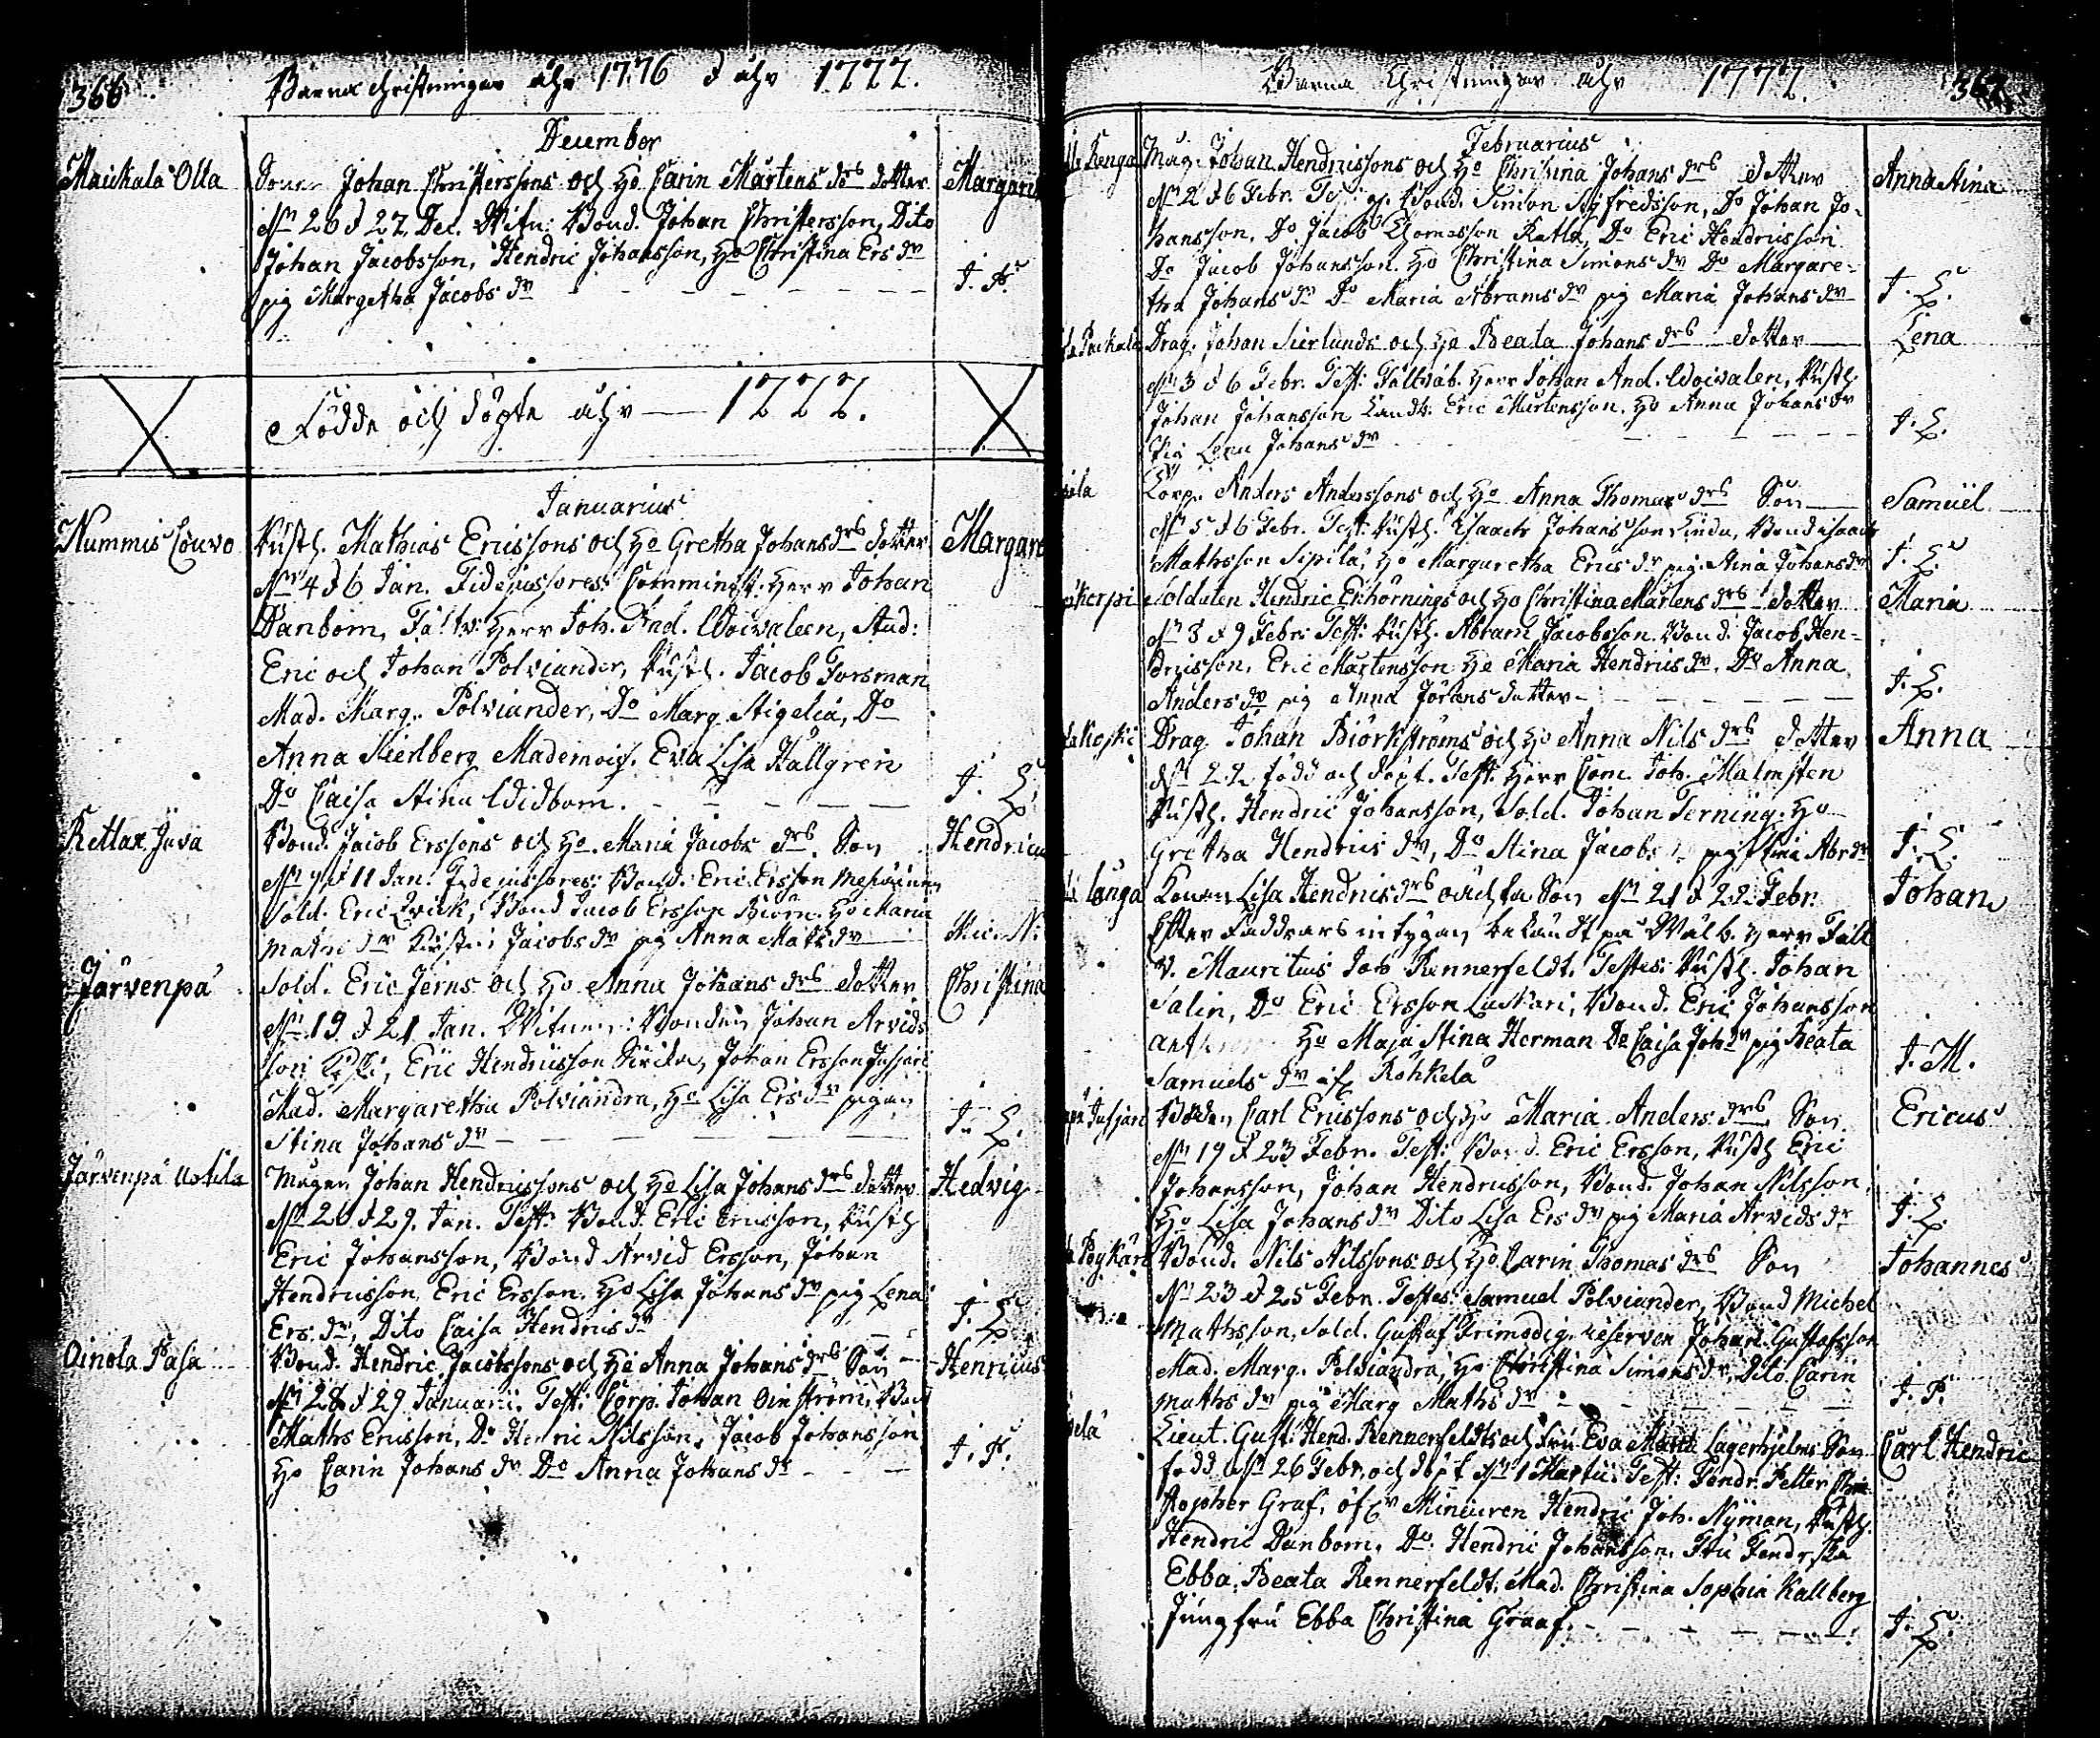 366
Barna Christningar åhr 1776 & åhr 1777.
December
Maickala Olla
Johan Christerssons och Ho Carin Mårtens drs dotter
Margaret
N 26 d 27 Dec. Vitn: Bond. Johan Christersson, Dito
Johan Jacobsson, Hendric Johansson, Ho Christina Ers dr
pig Margetha Jacobs dr
J. P.
Födde och döpte åhr 1777.
Januarius
Nummis Couvo
Rusth. Mathias Ericssons och Ho Gretha Johans drs dotter
Margare
N 4 d 6 Jan. Fidejussores: Comminist. Herr Johan
Danbom, Fältv: Herr Joh. And. Woivaleen, Stud:
Eric och Johan Polviander, Rusth. Jacob Forsman
Mad. Marg. Polviander, Do Marg. Stigelia, Do
Anna Mierlberg Mademois. Eva Lisa Hallgren
Do Caisa Stina Widbom.
J. L.
Retlax Juva
Bond. Jacob Erssons och Ho Maria Jacobs drs Son
Hendricus
N 9 d 11 Jan. Fidejussores: Bond. Eric Ersson
Sold. Eric Qvick, Bond Jacob Ersson Biörn. Ho Maria
Maths dr Jacobs dr pig Anna Mats dr
Mic. N:
Järvenpä
Sold. Eric Jerns och Ho Anna Johans drs dotter
Christina
N 19 d 21 Jan. Vitnen: Bonden Johan Arvids
son Eric Hendricsson Johan Ersson Jusjäri
Mad. Margaretha Polviandra, Ho Lisa Ers dr pigan
Stina Johans dr
J. L.
Järvenpä Uotila
Mågen Johan Hendricssons och Ho Lisa Johans drs dotter
Hedvig
N 26 d 29. Jan. Test: Bond. Eric Ericsson, Rusth
Eric Johansson, Bond Arvid Ersson, Johan
Hendricsson, Eric Ersson. Ho Lisa Johans dr pig Lena
Ers. dr, Dito Caisa Hendrics dr
J. L.
Oinola Pasa
Bond. Hendric Jacobssons och Ho Anna Johans drs Son
Henricus
N 28 d 29 Januarii. Test: Corp. Johan Oinström, Bond
Maths Ericsson, Do Henric Nilsson, Jacob Johansson
Ho Carin Johans dr Do Anna Johans dr
J. P.
Barna Christningar åhr 1777.
367
Februarius
Renga
Måg. Johan Hendricssons och Ho Christina Johans drs dotter
Anna Stina
N 2 d 6 Febr. Test: Bond. Simon Sigfredsson, Do Johan Jo-
hansson, Do Jacob Thomasson Do Eric Hendricsson
Do Jacob Johansson. Ho Christina Simons dr Do Margare-
tha Johans dr Do Maria Abrams dr pig Maria Johans dr
J. L.
Packala
Drag. Johan Sierlunds och Ho Beata Johans drs dotter
Lena
N 3 d 6 Febr. Test: Fältväb. Herr Johan And. Woivalen, Rusth.
Johan Johansson Landb. Eric Mårtensson. Ho Anna Johans dr
Pig Lena Johans dr
J. L.
pila
Corp. Anders Anderssons och Ho Anna Thomas drs Son
Samuel
N 5 d 6 Febr. Test: Rusth. Isaach Johansson Bond Isaach
Mathsson Sipilä, Ho Margaretha Erics dr pig. Stina Johans dr
J. L.
kerpi
Soldaten Hendric Enhörnings och Ho Christina Mårtens drs dotter
Maria
N 8 d 9 Febr: Test: Rusth. Abram Jacobsson. Bond. Jacob Hen-
dricsson, Eric Mårtensson Ho Maria Hendrics dr. Do Anna
Anders dr pig Anna Jörans dotter
J. L.
Koski
Drag. Johan Biörkströms och Ho Anna Nils drs dotter
Anna
N 22 född och döpt. Test: Herr Com. Joh. Malmsten
Rusth. Hendric Johansson, Sold. Johan Terning. Ho
Gretha Hendrics dr, Do Stina Jacobs dr pig Stina Abr dr
J. L.
Långa
Konan Lisa Hendrics drs oächta Son N 21 d 22 Febr.
Johan
Efter Faddrars intygan bekändt på Wälb. Herr Fält
v. Mauritius Joh Rennerfeldt. Testes: Rusth. Johan
Salin, Do Eric Ersson Luckari, Bond. Eric Johansson
Ho Maja Stina Herman Do Caisa Joh dr pig Beata
Samuels dr af Röhkelä
J. M.
Jusjäri
Bonden Carl Ericssons och Ho Maria Anders drs Son
Ericus
N 19 d 23 Febr. Test: Bond. Eric Ersson, Rusth Eric
Johansson, Johan Hendricsson, Bond. Johan Nilsson,
Ho Lisa Johans dr Dito Lisa Ers dr pig Maria Arvids dr
J. L.
Pojkärs
Bond. Nils Nilssons och Ho Carin Thomas drs Son
Johannes
N 23 d 25 Febr. Testes: Samuel Polviander, Bond Michel
Mathsson, Sold. Gustaf Frimodig, reserven Johan Gustafsson
Mad. Marg. Polviandra, Ho Christina Simons dr, Dito Carin
Maths dr pig Marg Maths dr
J. P.
pelä
Lieut. Gust. Hend. Rennerfeldts och Fru Eva Maria Lagerhjelms Son
Carl Hendric
född N 26 Febr. och döpt N 1 Martii. Test: Fendr. Petter Chri-
stopher Graf, öfv Mineuren Hendric Joh. Nyman, Rusth.
Hendric Danbom, Do. Hendric Johansson. Fru Fendrska
Ebba Beata Rennerfeldt, Mad. Christina Sophia Kallberg
Jungfru Ebba Christina Graaf.
J. L.